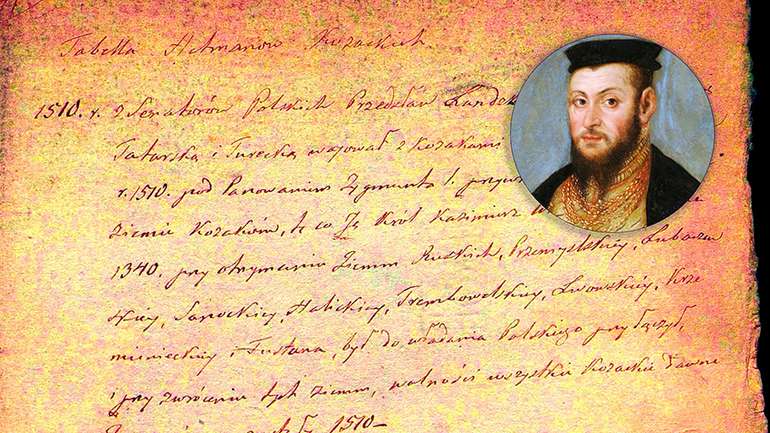 Tabella Hetmanow Kozackich
1510. r. z Senatorów Polskich Przedsław
Tatarską i Turecką wojował z Kozakami
r. 1510. pod Panowaniem Zygmunta I.
ziemie Kozaków, te co Je Król Kazimierz
1340. przy otrzymaniu Ziemm Ruskich, Przemyslskiey, Lubaczew
skiey, Sanockiey, Halickiey, Trembowelskiey, Lwowskiey, Krze
mienieckiey i był do władania Polskiego przyłączył,
i przy zwróceniu tych ziemm, wolności wszystkie Kozackie dawne
1510 –